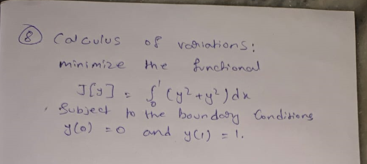 ⑧ Calculus of variations:
minimize the functional
J[y] = ∫₀¹ (y² + y²) dx
Subject to the boundary Conditions
y(0) = 0 and y(1) = 1.